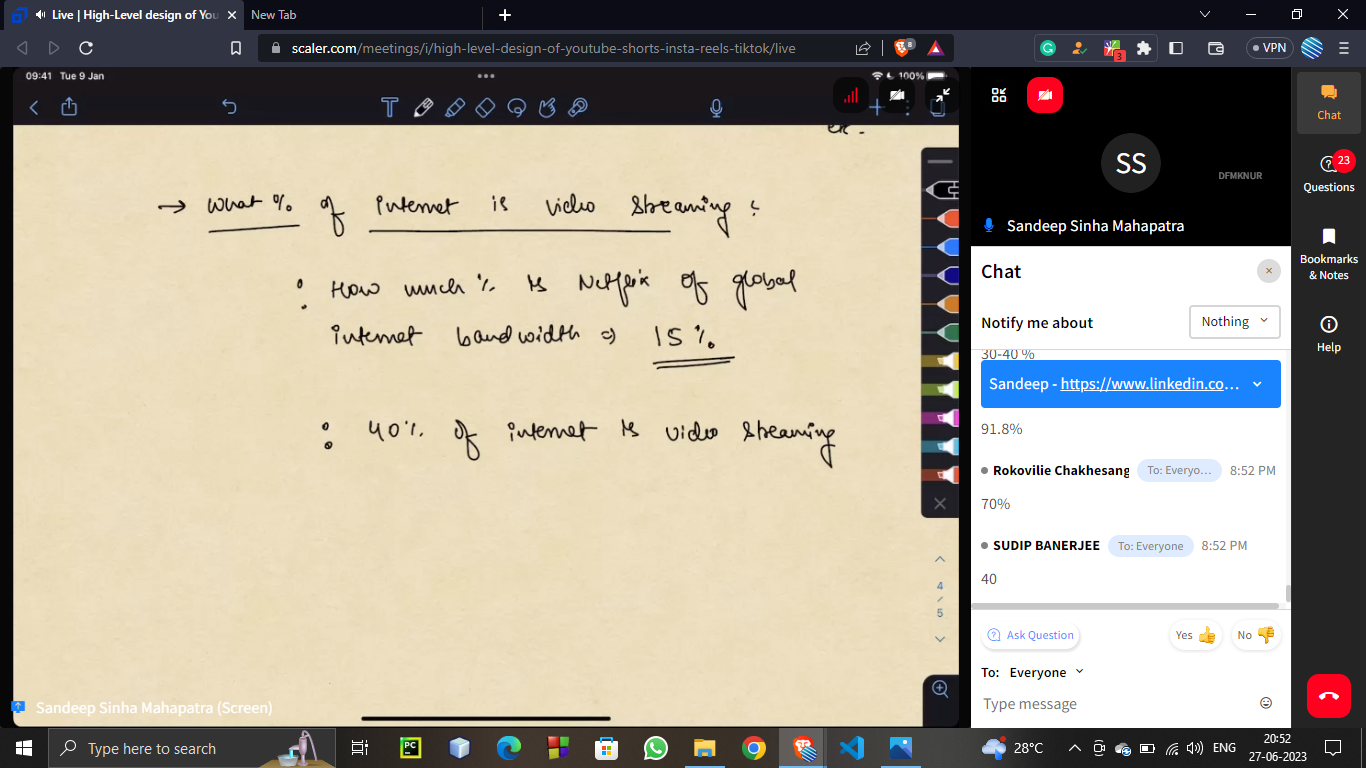 Live | High-Level design of You
New Tab
scaler.com/meetings/i/high-level-design-of-youtube-shorts-insta-reels-tiktok/live
8
3
VPN
09:41 Tue 9 Jan
100%
→ What % of internet is video streaming :
: How much % is Netflix of global
internet bandwidth ⇒ 15%
: 40% of internet is video streaming
4
/
5
Sandeep Sinha Mahapatra (Screen)
SS
DFMKNUR
Sandeep Sinha Mahapatra
Chat
Notify me about
Nothing
30-40 %
Sandeep - https://www.linkedin.co...
91.8%
Rokovilie Chakhesang To: Everyo... 8:52 PM
70%
SUDIP BANERJEE To: Everyone 8:52 PM
40
Ask Question
Yes
No
To: Everyone
Type message
Chat
23
Questions
Bookmarks
& Notes
Help
Type here to search
PC
28°C
ENG
20:52
27-06-2023